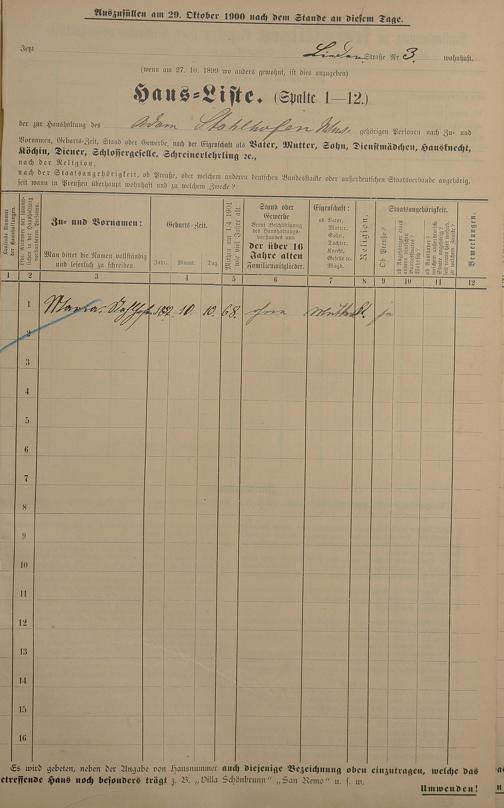 Auszufüllen am 29. Oktober 1900 nach dem Stande an diesem Tage.
Jetzt Linden Straße Nr. 3 wohnhaft.
(wenn am 27. 10. 1899 wo anders gewohnt, ist dies anzugeben)
Haus-Liste. (Spalte 1—12.)
der zur Haushaltung des Adam Stahlhofen Wwe. gehörigen Personen nach Zu- und
Vornamen, Geburts-Zeit, Stand oder Gewerbe, nach der Eigenschaft als Vater, Mutter, Sohn, Dienstmädchen, Hausknecht,
Köchin, Diener, Schlossergeselle, Schreinerlehrling 2c.,
nach der Religion,
nach der Staatsangehörigkeit, ob Preuße, oder welchem anderen deutschen Bundesstaate oder außerdeutschen Staatsverbande angehörig,
seit wann in Preußen überhaupt wohnhaft und zu welchem Zwecke?
Zu- und Vornamen:
Man bittet die Namen vollständig
und leserlich zu schreiben
Geburts-Zeit.
Jahr. Monat. Tag.
Mithin am 1/4 1901
wie viel Jahre alt.
Stand oder
Gewerbe
der über 16
Jahre alten
Familienmitglieder.
Eigenschaft:
ob Vater,
Mutter,
Sohn,
Tochter,
Knecht,
Geselle ec.
Magd.
Religion.
Staatsangehörigkeit.
Ob Preuße?
Bemerkungen.
1 2 3 4 5 6 7 8 9 10 11 12
1 Maria 10. 10. 68. Mutter ja
2
3
4
5
6
7
8
9
10
11
12
13
14
15
16
Es wird gebeten, neben der Angabe von Hausnummer auch diejenige Bezeichnung oben einzutragen, welche das
etreffende Haus noch besonders trägt z. B. „Villa Schönbrunn" „San Remo" u. s. w.
Umwenden!